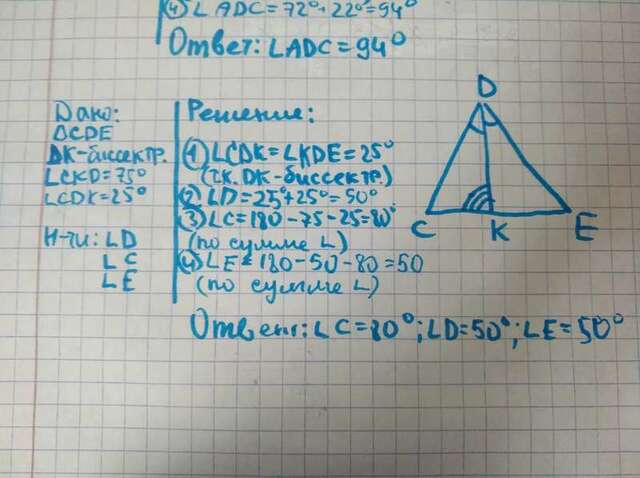 ④ ∠ADC=72°+22°=94°
Ответ: ∠ADC=94°
Дано:
△CDE
DK-биссектр.
∠CKD=75°
∠CDK=25°
Н-ти: ∠D
∠C
∠E
Решение:
① ∠CDK=∠KDE=25°
(т.к. DK-биссектр.)
② ∠D=25°+25°=50°
③ ∠C=180-75-25=80°
(по сумме ∠)
④ ∠E=180-50-80=50
(по сумме ∠)
Ответ: ∠C=80°; ∠D=50°; ∠E=50°
D
C
K
E